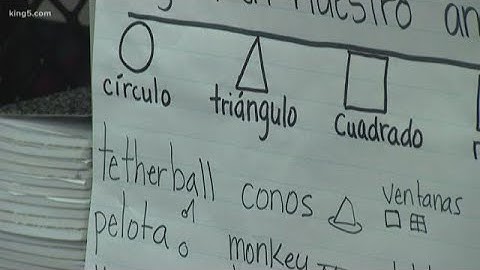 king5.com
nuestro an
círculo
triángulo
Cuadrado
tetherball
conos
ventanas
pelota
monkey